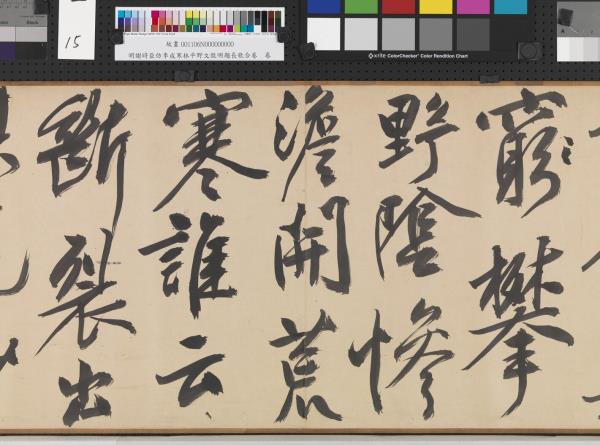 15
Black
故畫 001106N000000000
明謝時臣仿李成寒林平野文徵明題長歌合卷 卷
x-rite ColorChecker Color Rendition Chart
窮攀
野陰慘
澹開荒
寒誰云
斷裂出